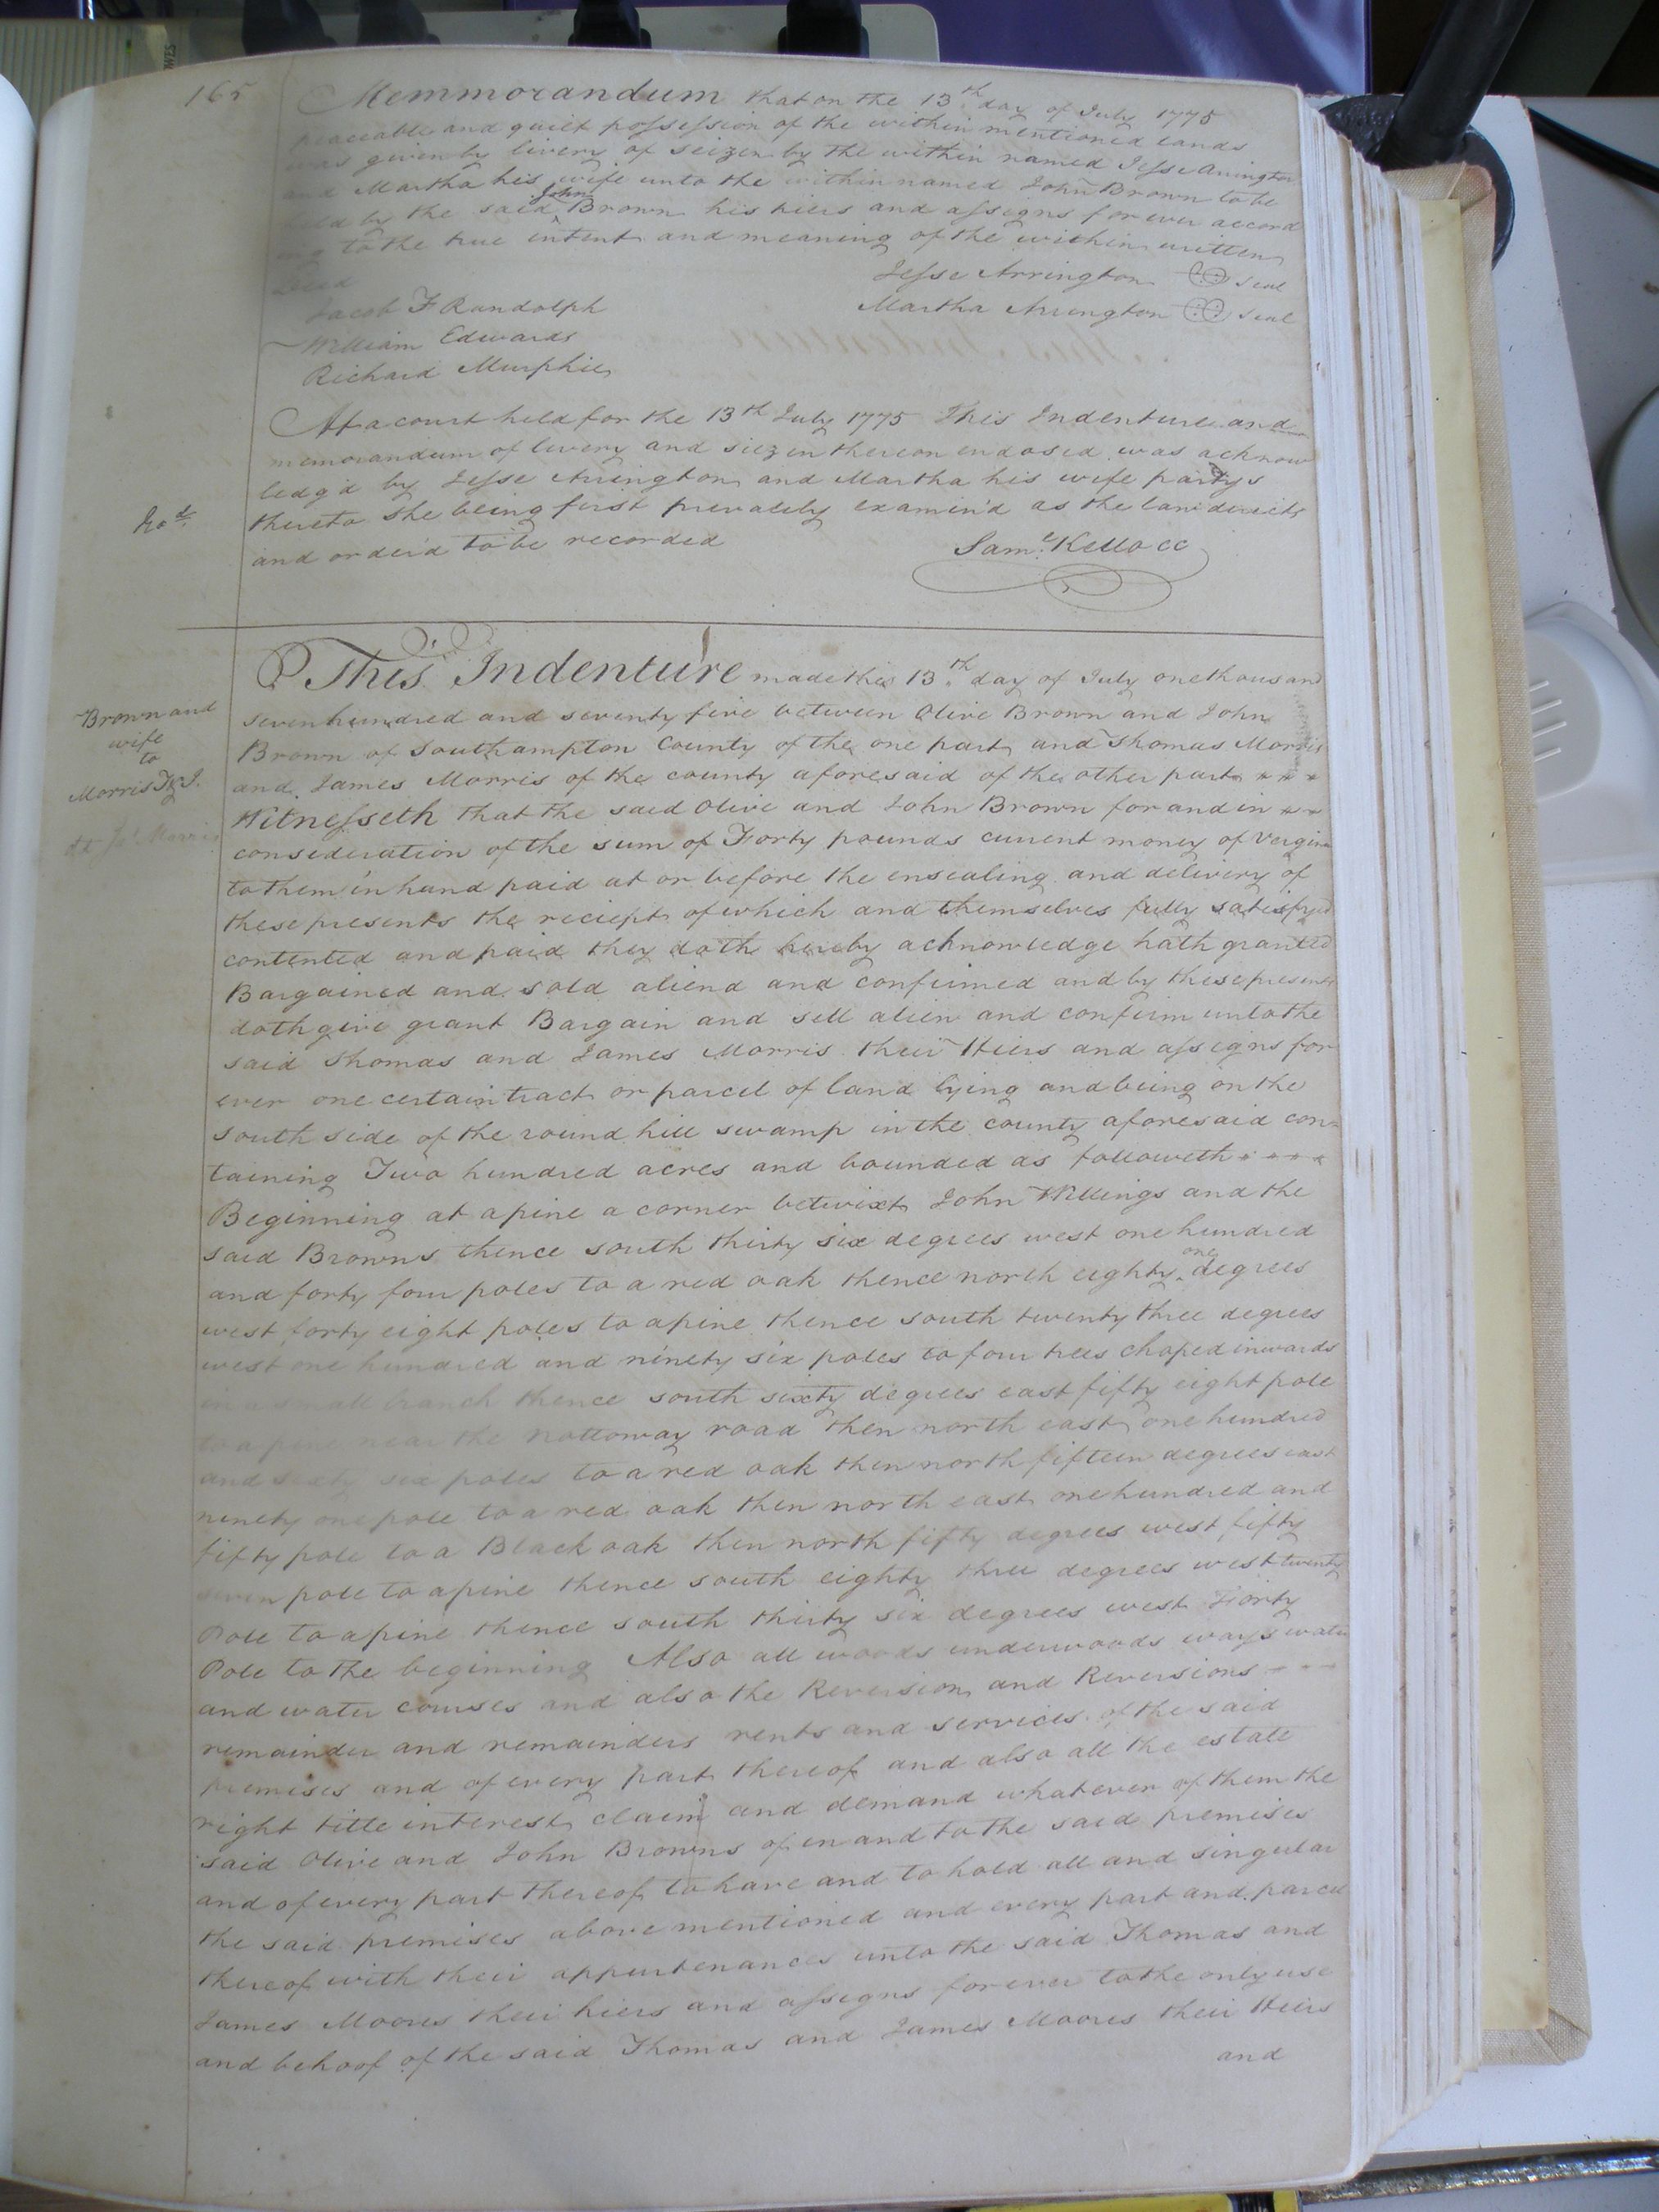 165
Memmorandum that on the 13th day of July 1775
peaceable and quilt possession of the within mentioned lands
was given by livery of seizen by the within named Jesse Arrington
and Martha his wife unto the within named John Brown to be
held by the said John Brown his hiers and assigns for ever accord
ing to the true intent and meaning of the within written
Deed
Jesse Arrington seal
Martha Arrington seal
Jacob F Randolph
William Edwards
Richard Murphie
At a court held for the 13th July 1775 This Indenture and
memorandum of livery and siezen thereon endosed was acknow
ledg'd by Jesse Arrington and Martha his wife partys
thereto she being first prevately examin'd as the law directs
and order'd to be recorded
Saml Kello CC
This Indenture made this 13th day of July one thousand
Brown and
wife
to
Morris T & J.
seven hundred and seventy five between Olive Brown and John
Brown of Southampton County of the one part and Thomas Morris
and James Morris of the county aforesaid of the other part
Witnesseth that the said Olive and John Brown for and in
consideration of the sum of Forty pounds current money of Vergina
to them in hand paid at or before the ensealing and delivery of
these presents the reciept of which and themselves fully satisfyed
contented and paid they doth hereby acknowledge hath granted
Bargained and sold aliend and confirmed and by these presents
doth give grant Bargain and sell alien and confirm unto the
said Thomas and James Morris their Hiers and assigns for
ever one certain tract or parcel of land lying and being on the
south side of the round hill swamp in the county aforesaid con=
taining Two hundred acres and bounded as followeth
Beginning at a pine a corner betwixt John Willings and the
said Browns thence south thirty six degrees west one hundred
and forty four poles to a red oak thence north eighty one degrees
west forty eight poles to a pine thence south twenty three degrees
west one hundred and ninety six poles to four trees choped inwards
in a small branch thence south sixty degrees east fifty eight pole
to a pine near the Nottoway road then north east one hundred
and sixty six poles to a red oak then north fifteen degrees east
ninety one pole to a red oak then north east one hundred and
fifty pole to a Black oak then north fifty degrees west fifty
seven pole to a pine thence south eighty three degrees west twenty
Pole to a pine thence south thirty six degrees west Fiorty
Pole to the beginning Also all woods underwoods ways water
and water courses and also the Reversion and Reversions
remainder and remainders rents and services of the said
premises and of every part thereof and also all the estate
right title interest claim and demand whatever of them the
said Olive and John Browns of in and to the said premises
and of every part thereof to have and to hold all and singular
the said premises above mentioned and every part and parcel
thereof with their appurtenances unto the said Thomas and
James Moores their hiers and assigns forever to the only use
and behoof of the said Thomas and James Moores their Hiers
and